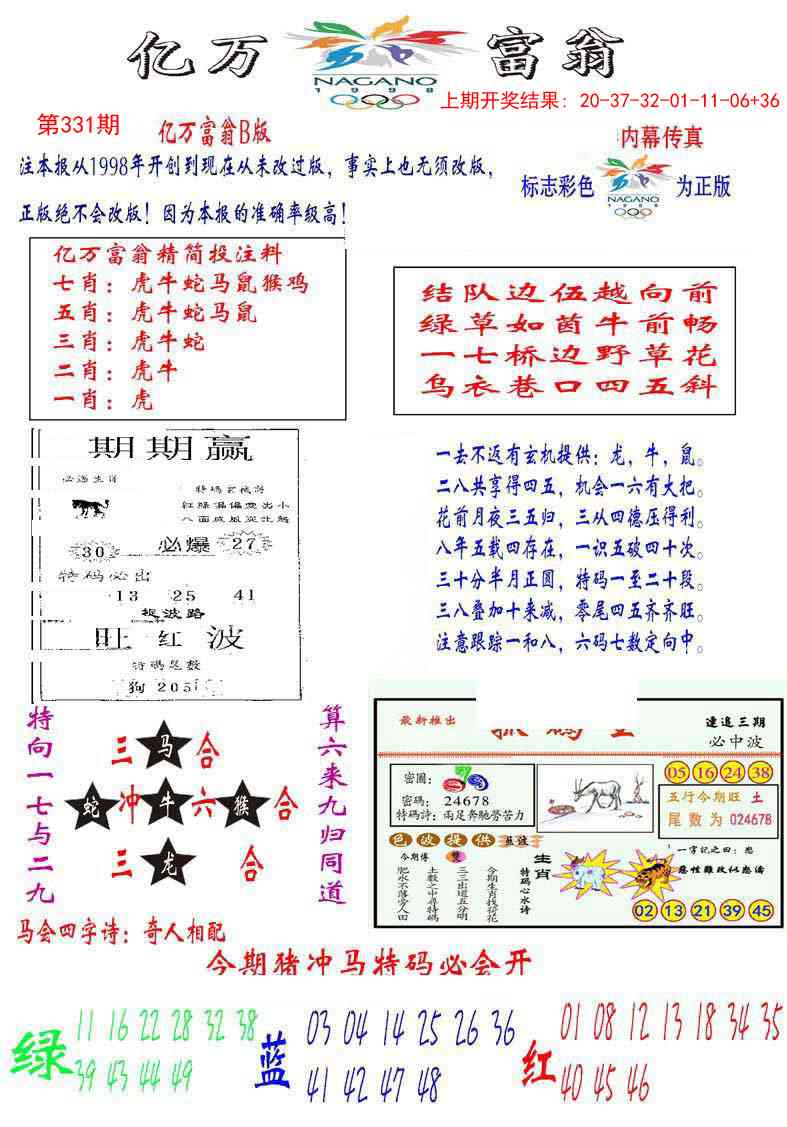 亿万
NAGANO
1998
富翁
上期开奖结果：20-37-32-01-11-06+36
第331期
亿万富翁B版
内幕传真
注本报从1998年开创到现在从未改过版，事实上也无须改版，
标志彩色
NAGANO
1998
为正版
正版绝不会改版！因为本报的准确率级高！
亿万富翁精简投注料
七肖：虎牛蛇马鼠猴鸡
五肖：虎牛蛇马鼠
三肖：虎牛蛇
二肖：虎牛
一肖：虎
结队边伍越向前
绿草如茵牛前畅
一七桥边野草花
乌衣巷口四五斜
期期赢
红绿漏偏要出小
必爆
30
27
特码必出
13 25 41
捉波路
旺红波
特码尾数
狗 2051
一去不返有玄机提供：龙，牛，鼠。
二八共享得四五，机会一六有大把。
花前月夜三五归，三从四德压得利。
八年五载四存在，一识五破四十次。
三十分半月正圆，特码一至二十段。
三八叠加十来减，零尾四五齐齐旺。
注意跟踪一和八，六码七数定向中。
特向一七与二九
三马合
蛇冲牛六猴合
三龙合
算六来九归同道
最新推出
連追三期
必中波
密圖：
密碼： 24678
特碼詩：兩足奔馳勞苦力
05 16 24 38
五行今期旺 土
尾数为 024678
色波提供 藍波
今期博 雙
肥水不落旁人田
土数之中尋特碼
三三出道五分明
今期生肖找荷花
特码心水诗
生肖
一字記之曰：惡
惡性難改似惡濤
02 13 21 39 45
马会四字诗：奇人相配
今期猪冲马特码必会开
绿
11 16 22 28 32 38
39 43 44 49
蓝
03 04 14 25 26 36
41 42 47 48
红
01 08 12 13 18 34 35
40 45 46